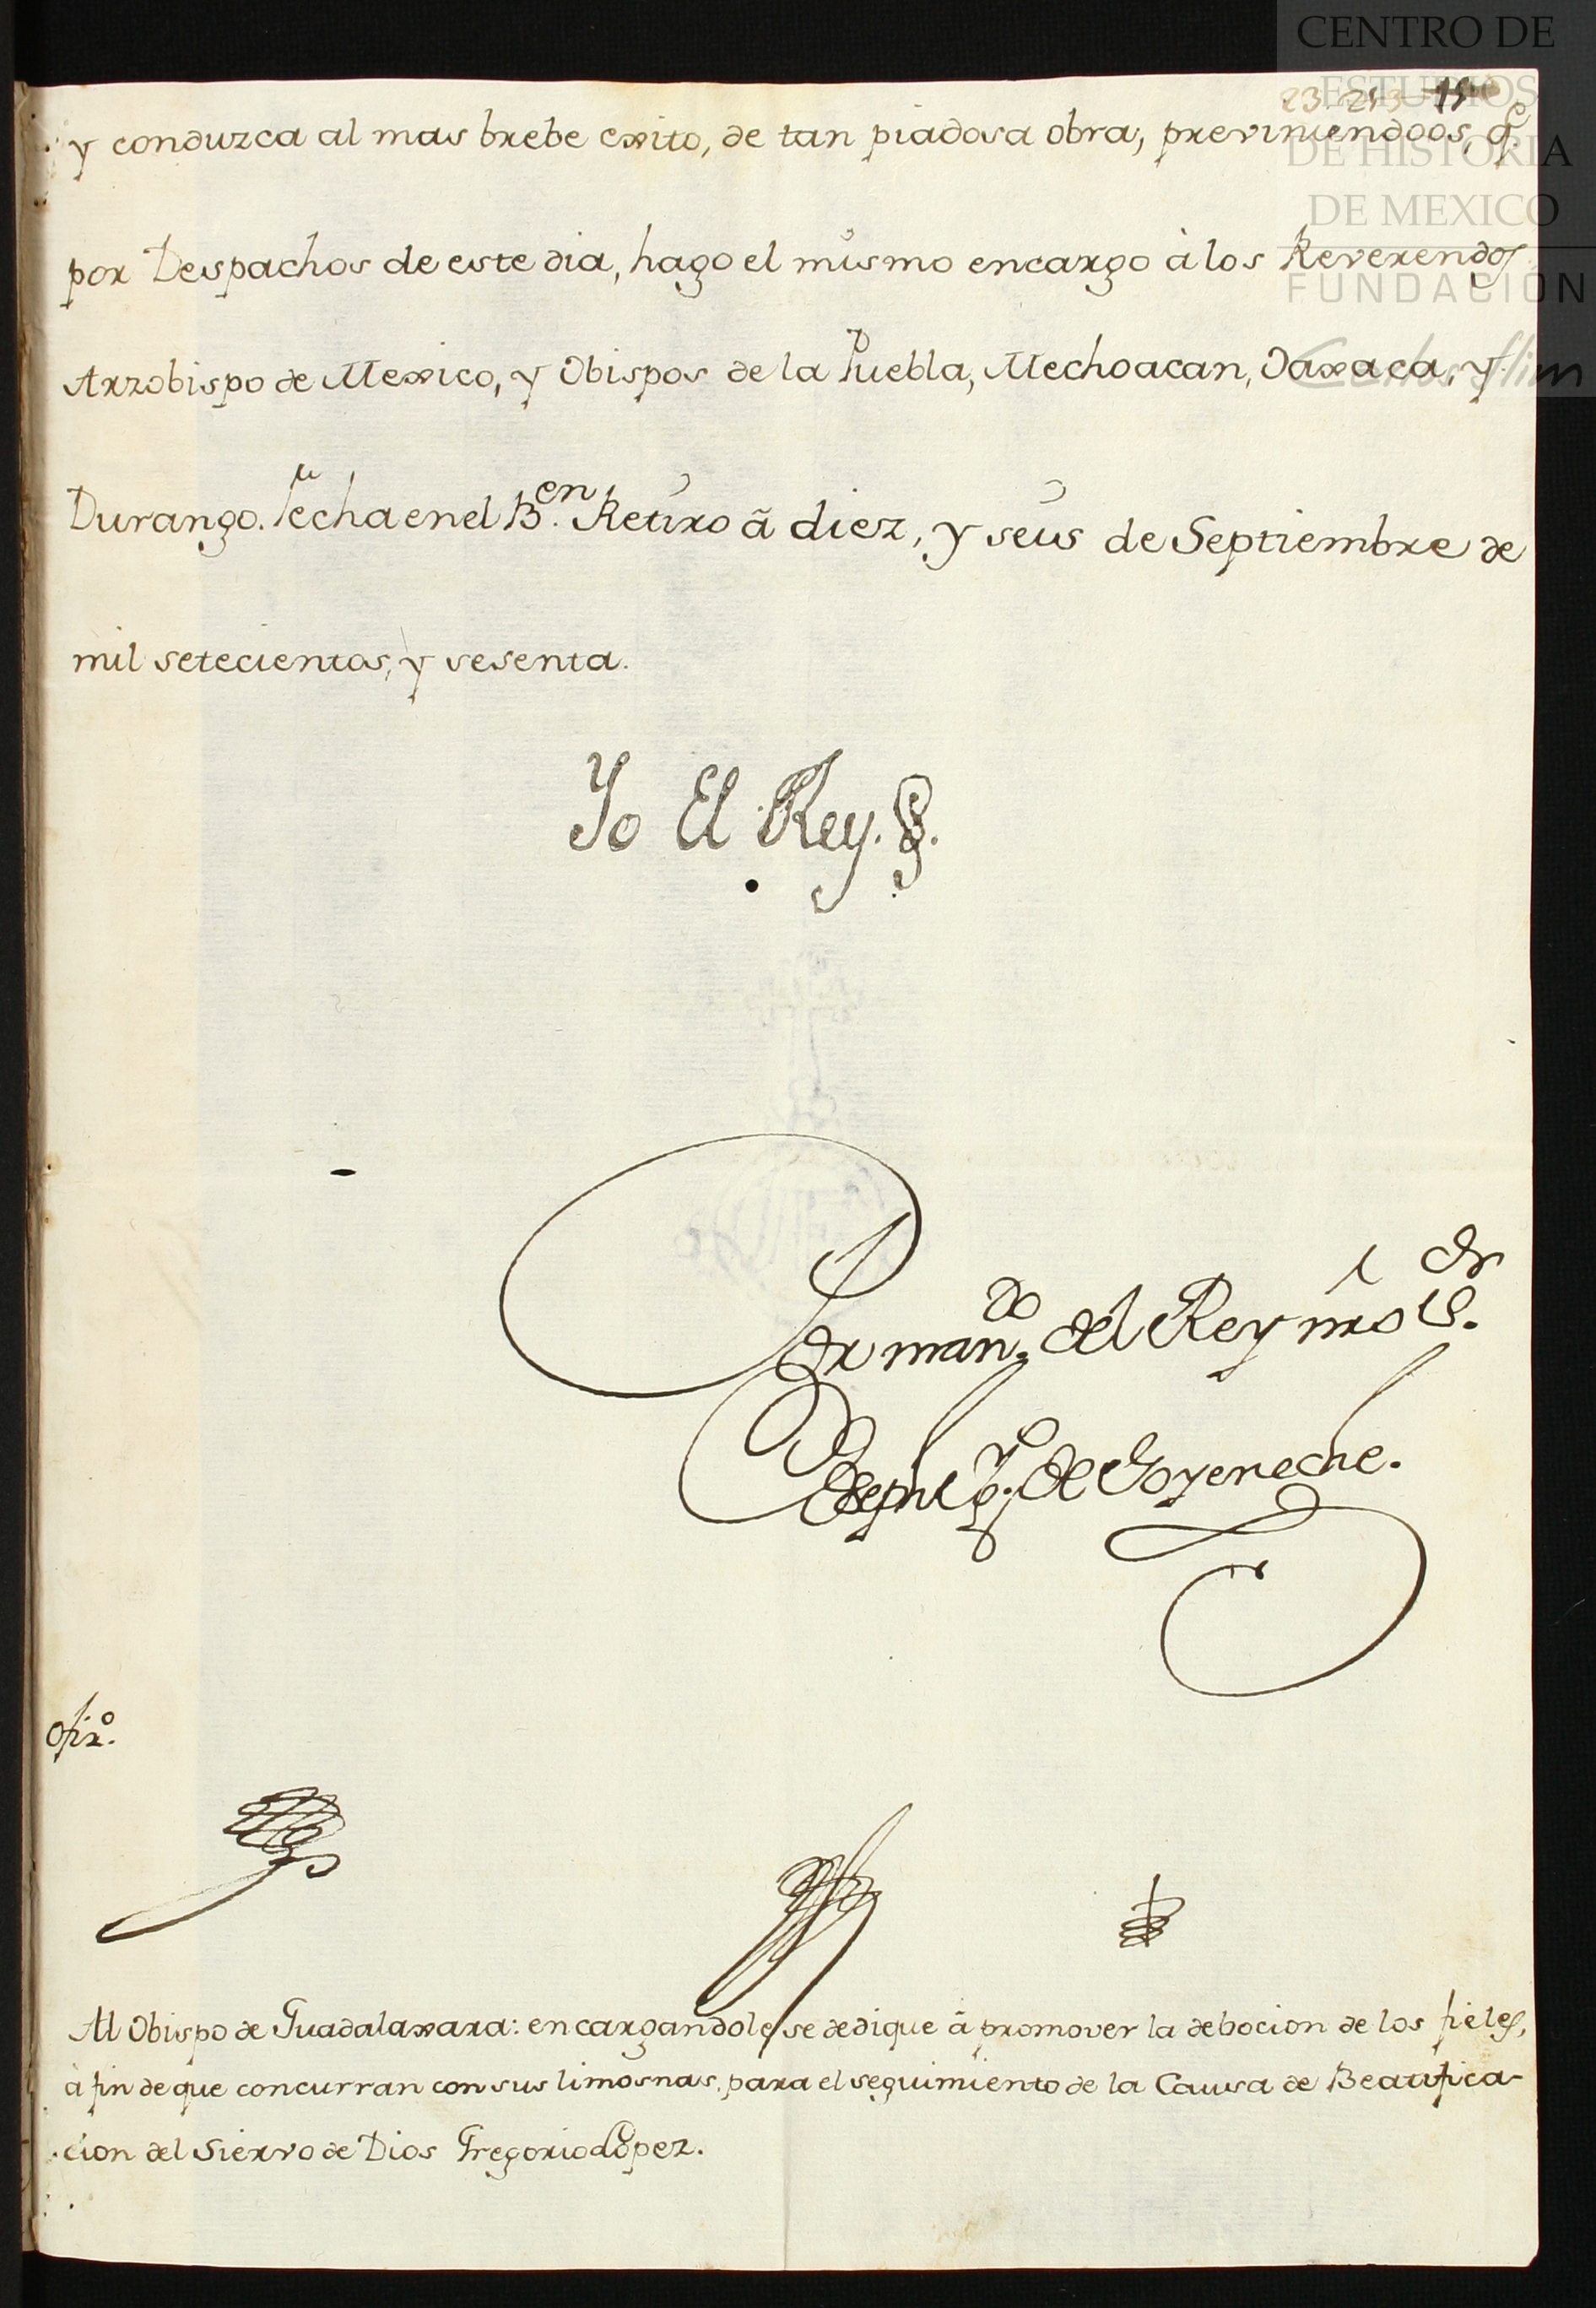 CENTRO DE
ESTUDIOS
DE HISTORIA
DE MEXICO
FUNDACIÓN
Carlos Slim
23 15
y conduzca al mas brebe exito, de tan piadosa obra, previniendoos, q.e
por Despachos de este dia, hago el mismo encargo à los Reverendos
Arzobispo de Mexico, y Obispos de la Puebla, Mechoacan, Oaxaca, y
Durango. Fecha en el B.en Retiro ã diez, y seis de Septiembre de
mil setecientos, y sesenta.
Yo El Rey.
Por man.do del Rey nro S.or
Joseph Ign.o de Goyeneche.
Ofiz.o
Al Obispo de Guadalaxara: encargandole se dedique ã promover la debocion de los fieles,
à fin de que concurran con sus limosnas, para el seguimiento de la Causa de Beatifica-
cion del Siervo de Dios Gregorio Lopez.